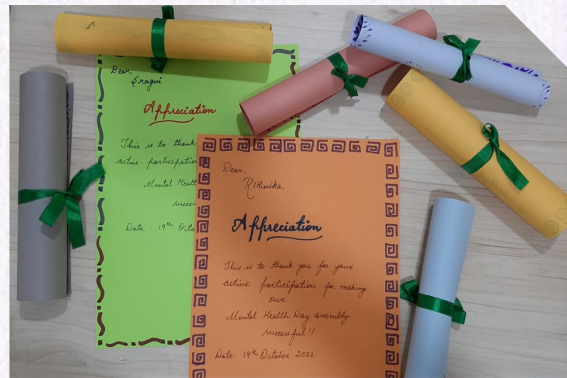 Dear,
Sragvi
Appreciation
This is to thank
active participation
Mental Healt
succes
Date - 19th Octo
Dear,
Rithvika,
Appreciation
This is to thank you for your
active participation for making
our
Mental Health Day assembly
successful!!
Date: 19th October 2022